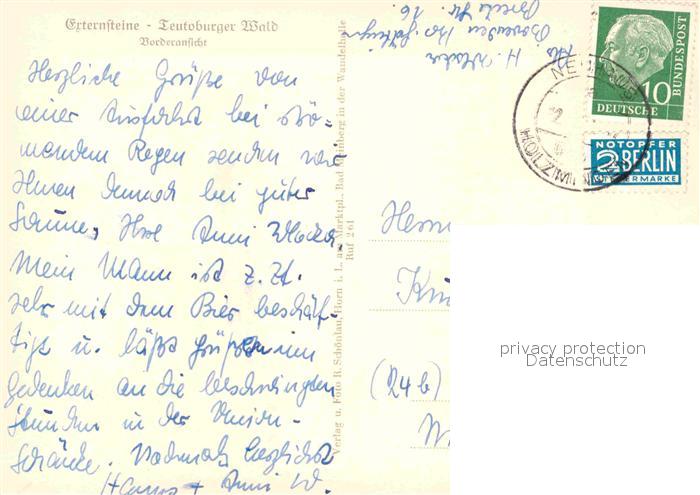 Externsteine - Teutoburger Wald
Vorderansicht
Herzliche Grüße von
einer Ausfahrt bei strö-
mendem Regen senden wir
Ihnen dennoch bei guter
Laune, Ihre Anni
Mein Mann ist z. Zt.
sehr mit dem Bier beschäf-
tigt u. läßt grüßen im
Gedenken an die beschwingten
Stunden in der Union-
Schänke. Nochmals herzlichst
Hans + Anni W.
Verlag u. Foto R. Schönlau, Horn i. L. am Marktpl. Bad Meinberg in der Wandelhalle
Ruf 261
Abs
H.
Breite Str. 16
DEUTSCHE
BUNDESPOST
10
NOTOPFER
2 BERLIN
STEUERMARKE
NEU
HOLZMINDEN
Herrn
(24b)
privacy protection
Datenschutz